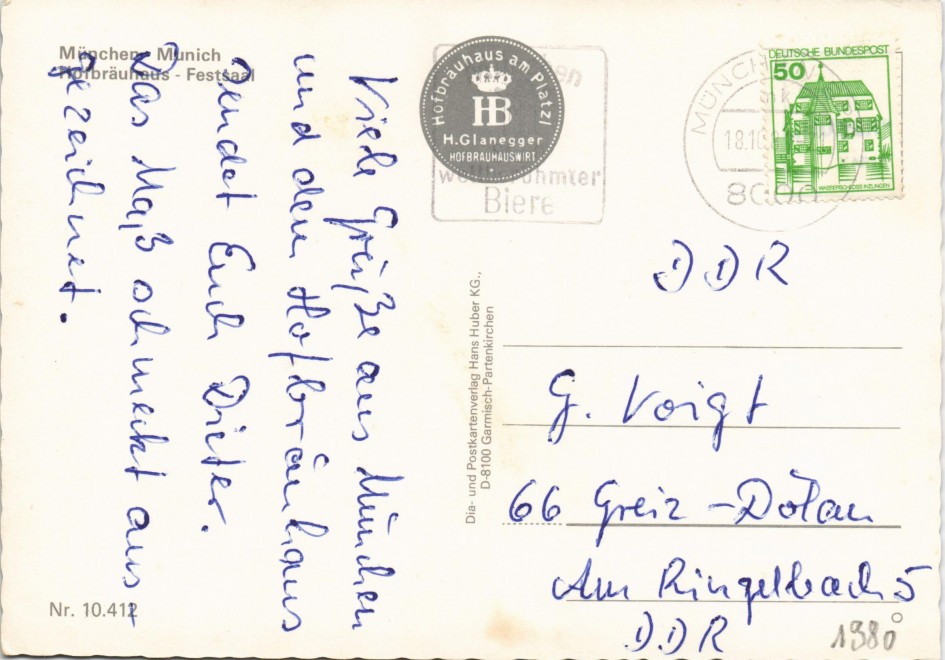 München - Munich
Hofbräuhaus - Festsaal
Viele Grüße aus München
und dem Hofbräuhaus
sendet Euch Dieter.
Das Maß schmeckt aus-
gezeichnet.
Nr. 10.412
Hofbräuhaus am Platzl
HB
H. Glanegger
HOFBRÄUHAUSWIRT
Biere
Dia- und Postkartenverlag Hans Huber KG.,
D-8100 Garmisch-Partenkirchen
MÜNCHEN
18.10
8000
DEUTSCHE BUNDESPOST
50
WASSERSCHLOSS INZLINGEN
DDR
G. Voigt
66 Greiz - Dölau
Am Ringelbach 5
DDR
1980